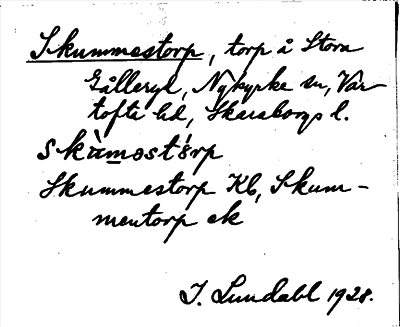 Skummestorp, torp å Stora
Gålleryd, Nykyrke sn, Var-
tofte hd, Skaraborgs l.
skùməst'ɔrp
Skummestorp Kb, Skum-
mentorp ek
I. Lundahl 1928.